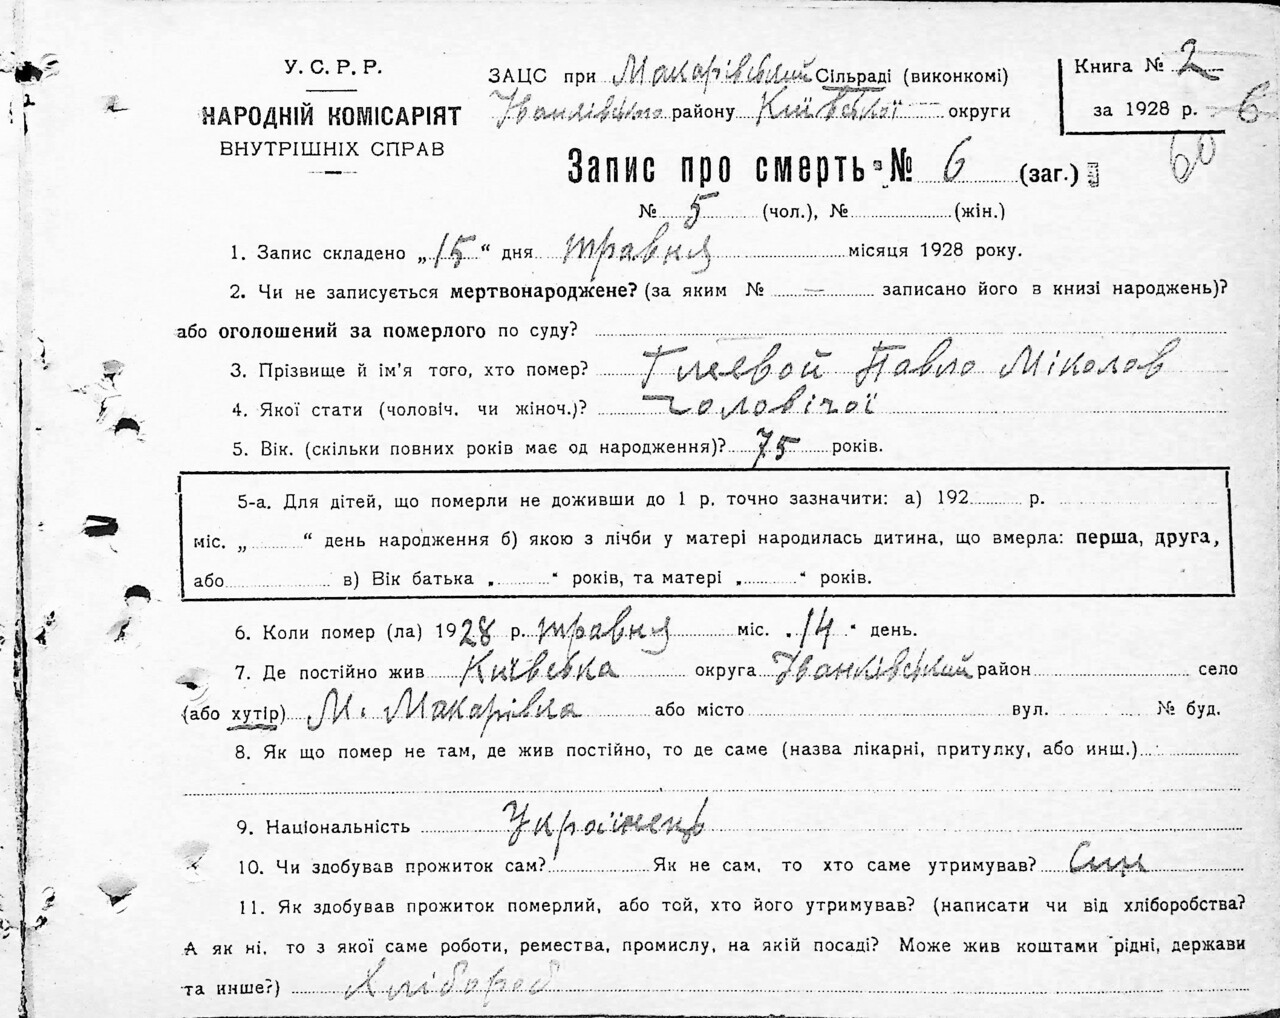 У. С. Р. Р.
НАРОДНІЙ КОМІСАРІЯТ
ВНУТРІШНІХ СПРАВ
ЗАЦС при Макарівський Сільраді (виконкомі)
Іванківського району Київської округи
Книга № 2
за 1928 р. 6
60
Запис про смерть № 6 (заг.)
№ 5 (чол.), № (жін.)
1. Запис складено „15“ дня травня місяця 1928 року.
2. Чи не записується мертвонароджене? (за яким № — записано його в книзі народжень)?
або оголошений за померлого по суду?
3. Прізвище й ім'я того, хто помер? Глевой Павло Міколов
4. Якої стати (чоловіч. чи жіноч.)? чоловічої
5. Вік. (скільки повних років має од народження)? 75 років.
5-а. Для дітей, що померли не доживши до 1 р. точно зазначити: а) 192 р.
міс. „ “ день народження б) якою з лічби у матері народилась дитина, що вмерла: перша, друга,
або в) Вік батька „ “ років, та матері „ “ років.
6. Коли помер (ла) 1928 р. травня міс. „14“ день.
7. Де постійно жив Київська округа Іванківський район село
(або хутір) М. Макарівка або місто вул. № буд.
8. Як що помер не там, де жив постійно, то де саме (назва лікарні, притулку, або инш.)
9. Національність Українець
10. Чи здобував прожиток сам? Як не сам, то хто саме утримував? Син
11. Як здобував прожиток померлий, або той, хто його утримував? (написати чи від хліборобства?
А як ні, то з якої саме роботи, ремества, промислу, на якій посаді? Може жив коштами рідні, держави
та инше?) Хлібороб